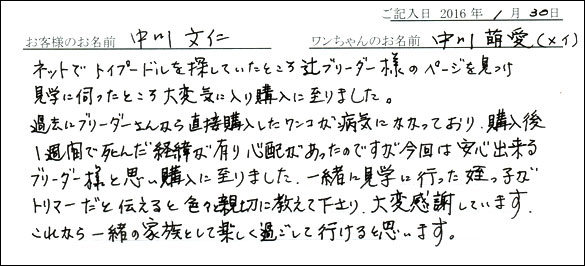 ご記入日 2016 年 1 月 30 日
お客様のお名前 中川 文仁 ワンちゃんのお名前 中川 萌愛(メイ)
ネットでトイプードルを探していたところ辻ブリーダー様のページを見つけ
見学に伺ったところ大変気に入り購入に至りました。
過去にブリーダーさんから直接購入したワンコが病気にかかっており、購入後
1週間で死んだ経緯が有り心配があったのですが今回は安心出来る
ブリーダー様と思い購入に至りました。一緒に見学に行った姪っ子が
トリマーだと伝えると色々親切に教えて下さり、大変感謝しています。
これから一緒の家族として楽しく過ごして行けると思います。